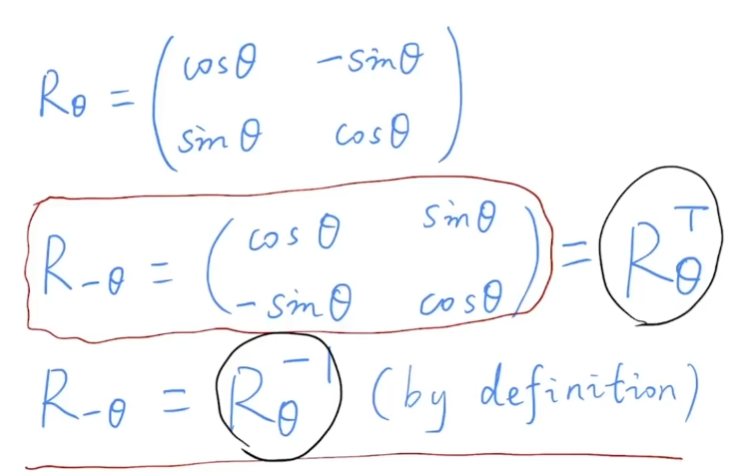 R_θ = ( cosθ   -sinθ
        sinθ   cosθ )
R_-θ = ( cosθ   sinθ
         -sinθ   cosθ ) = R_θ^T
R_-θ = R_θ^-1 (by definition)